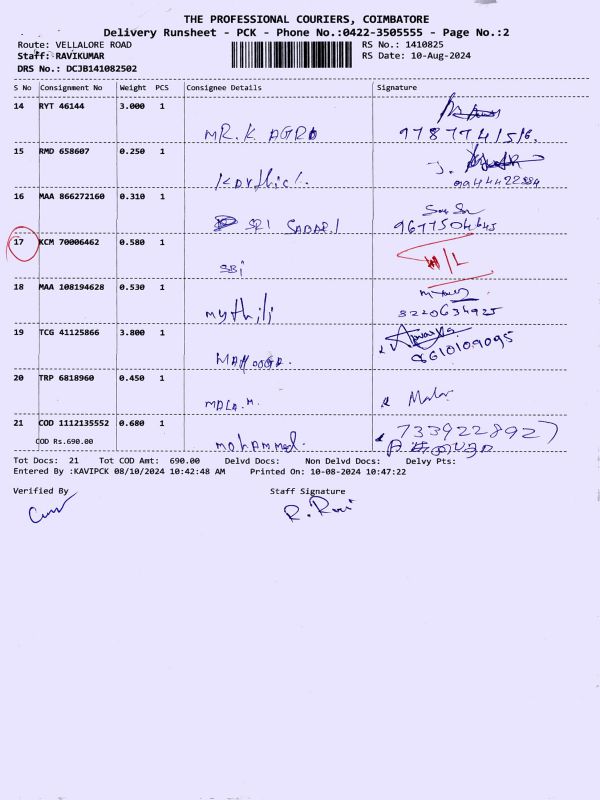 THE PROFESSIONAL COURIERS, COIMBATORE
Delivery Runsheet - PCK - Phone No.:0422-3505555 - Page No.:2
Route: VELLALORE ROAD
RS No.: 1410825
Staff: RAVIKUMAR
RS Date: 10-Aug-2024
DRS No.: DCJB141082502
S No Consignment No Weight PCS Consignee Details Signature
14 RYT 46144 3.000 1
MR.K AGRO
15 RMD 658607 0.250 1
Karthick. 9944422884
16 MAA 866272160 0.310 1
SRI 9677504645
17 KCM 70006462 0.580 1
SBi
18 MAA 108194628 0.530 1
mythili
19 TCG 41125866 3.800 1
8610109095
20 TRP 6818960 0.450 1
MALA.M. Mala
21 COD 1112135552 0.680 1 7339228927
COD Rs.690.00 mohammed.
Tot Docs: 21 Tot COD Amt: 690.00 Delvd Docs: Non Delvd Docs: Delvy Pts:
Entered By :KAVIPCK 08/10/2024 10:42:48 AM Printed On: 10-08-2024 10:47:22
Verified By Staff Signature
R. Ravi